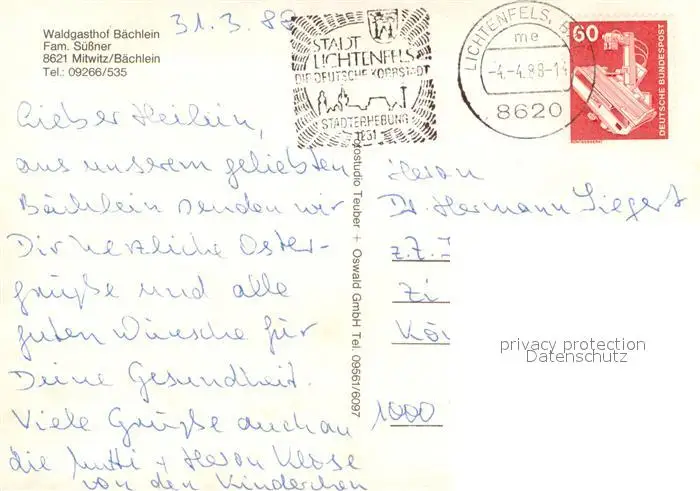 Waldgasthof Bächlein
Fam. Süßner
8621 Mitwitz/Bächlein
Tel.: 09266/535
31.3.88
STADT
LICHTENFELS
DIE DEUTSCHE KORBSTADT
STADTERHEBUNG
1231
LICHTENFELS,
me
-4.-4.88-1
8620
60
DEUTSCHE BUNDESPOST
Lieber Heilein,
aus unserem geliebten
Bächlein senden wir
Dir herzliche Oster-
grüße und alle
guten Wünsche für
Deine Gesundheit.
Viele Grüße auch an
die Mutti + Herrn Klose
von den Kinderchen
otostudio Teuber + Oswald GmbH Tel. 09561/6097
Herrn
Dr. Hermann Siegert
z.Z.
Zi
Kö
1000
privacy protection
Datenschutz